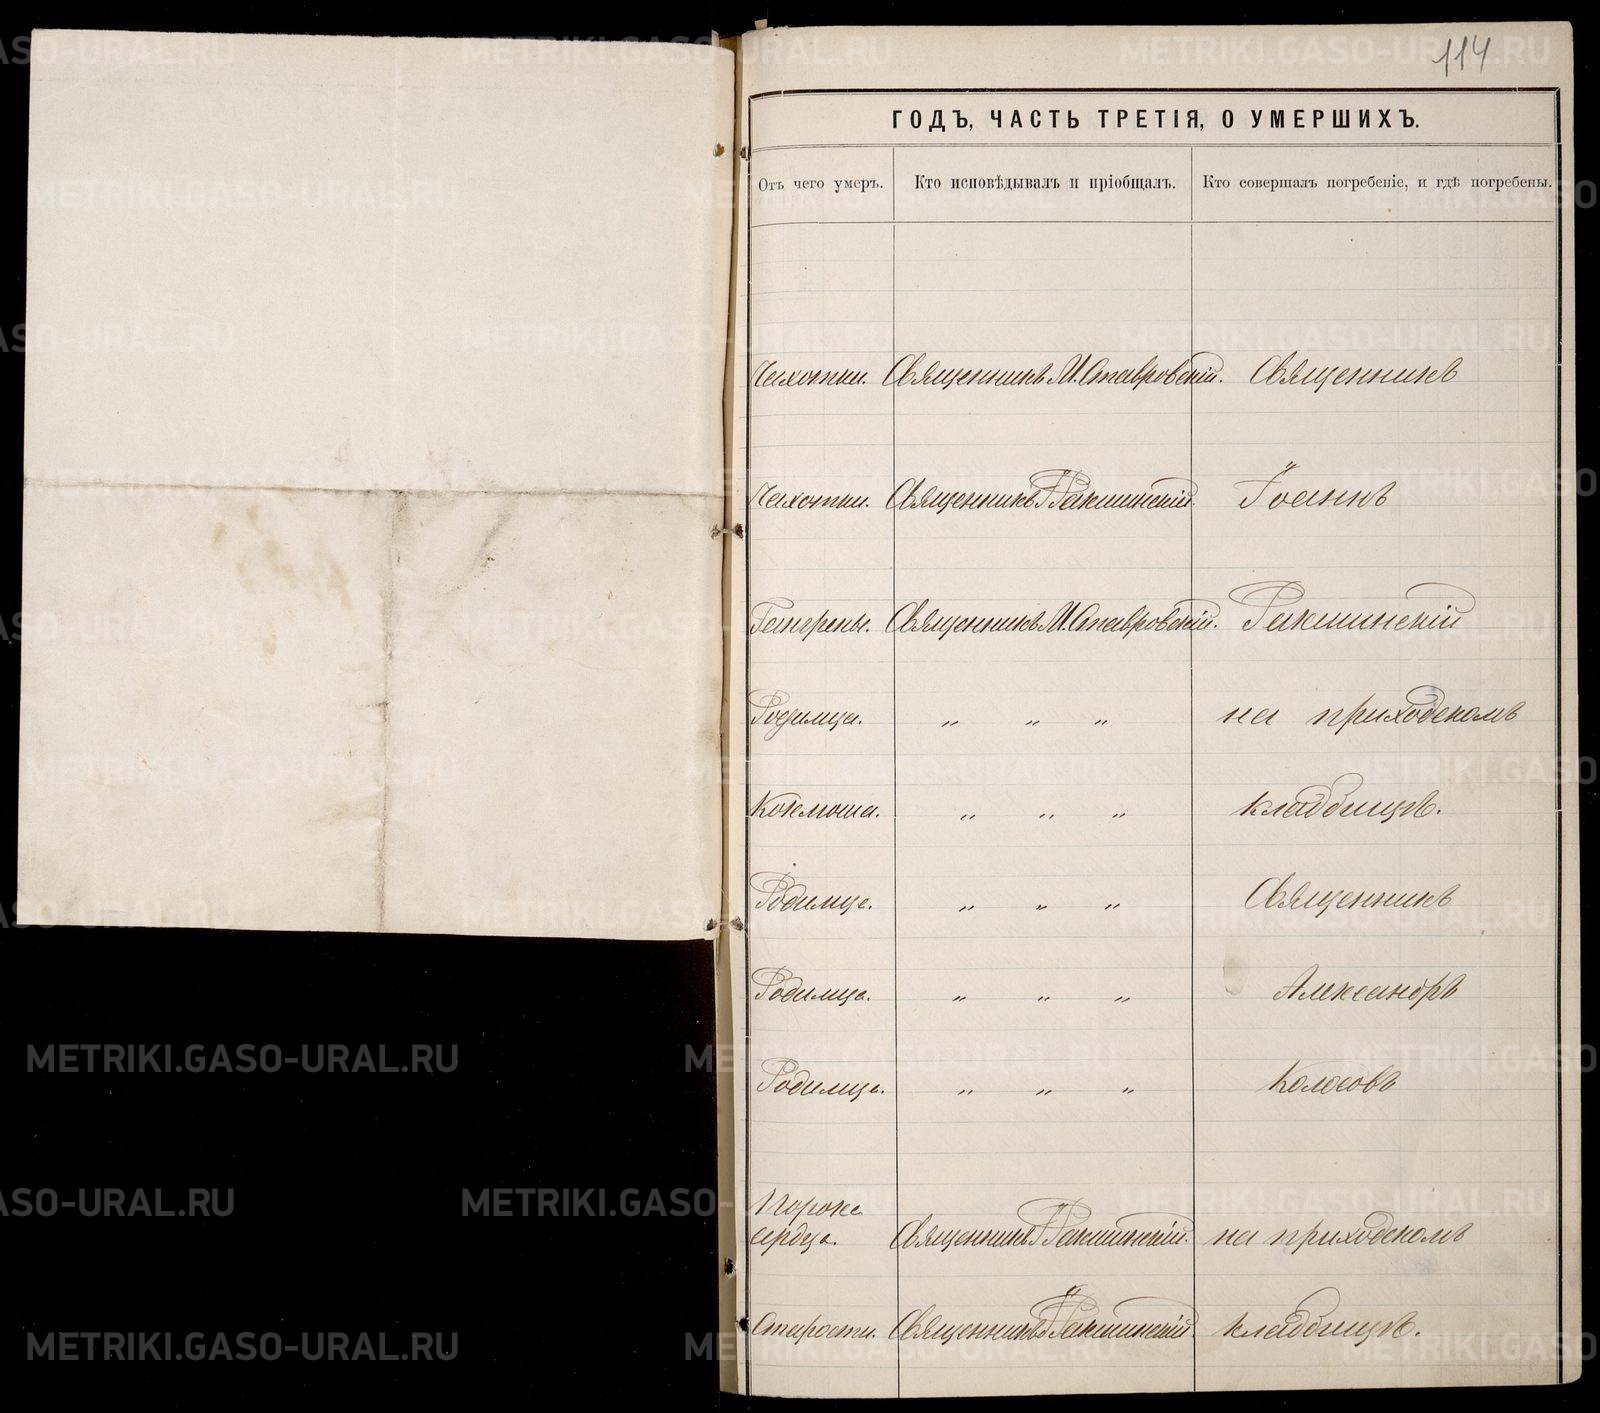 114
ГОДЪ, ЧАСТЬ ТРЕТІЯ, О УМЕРШИХЪ.
Отъ чего умеръ. Кто исповѣдывалъ и пріобщалъ. Кто совершалъ погребеніе, и гдѣ погребены.
Чахотки. Священникъ М. Ставровскій. Священникъ
Чахотки. Священникъ І. Ракшинскій. Іоаннъ
Гангрены. Священникъ М. Ставровскій. Ракшинскій
Родимца. „ „ „ на приходскомъ
Коклюша. „ „ „ кладбищѣ.
Родимца. „ „ „ Священникъ
Родимца. „ „ „ Александръ
Родимца. „ „ „ Колосовъ
Порока
сердца. Священникъ І. Ракшинскій. на приходскомъ
Старости. Священникъ І. Ракшинскій. кладбищѣ.
METRIKI.GASO-URAL.RU